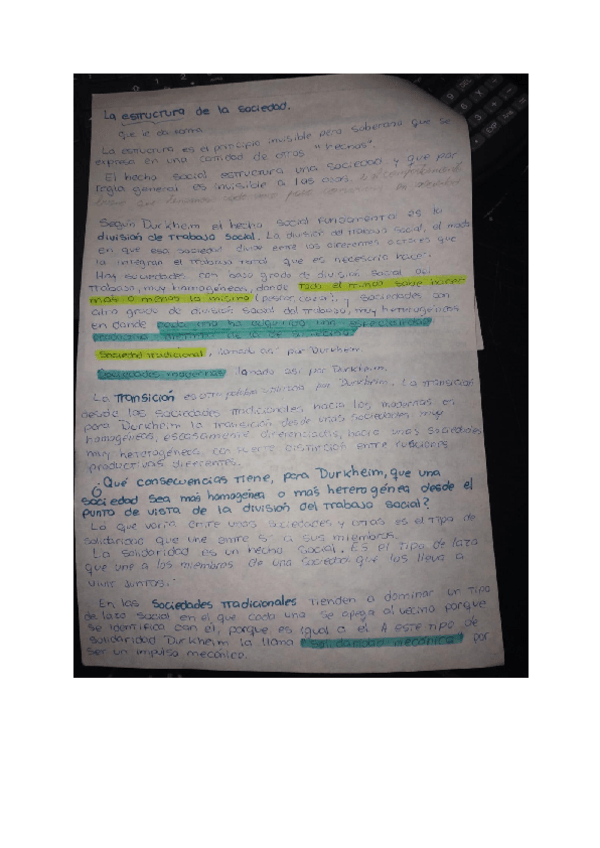 La estructura de la sociedad.
que le da forma
La estructura es el principio invisible pero soberano que se
expresa en una cantidad de otros "hechos".
El hecho social estructura una sociedad y que por
regla general es invisible a los ojos.
Según Durkheim el hecho social fundamental es la
división de trabajo social. La división del trabajo social, el modo
en que esa sociedad divide entre los diferentes actores que
la integran el trabajo total que es necesario hacer.
Hay sociedades con bajo grado de división social del
trabajo, muy homogéneas, donde todo el mundo sabe hacer
más o menos lo mismo (pescar, cazar), y sociedades con
alto grado de división social del trabajo, muy heterogéneas
en donde cada uno ha adquirido una especialidad
Sociedad tradicional, llamada así por Durkheim.
Sociedades modernas llamada así por Durkheim.
La Transición es otra palabra por Durkheim. La transición
desde las sociedades tradicionales hacia las modernas es
para Durkheim la transición desde unas sociedades muy
homogéneas, escasamente diferenciadas, hacia unas sociedades
muy heterogéneas, con fuerte distinción entre funciones
productivas diferentes.
¿Qué consecuencias tiene, para Durkheim, que una
sociedad sea más homogénea o más heterogénea desde el
punto de vista de la división del trabajo social?
Lo que varía entre unas sociedades y otras es el tipo de
solidaridad que une entre sí a sus miembros.
La solidaridad es un hecho social. Es el tipo de lazo
que une a los miembros de una sociedad que los lleva a
vivir juntos.
En las Sociedades Tradicionales tienden a dominar un tipo
de lazo social en el que cada uno se apega al vecino porque
se identifica con él, porque es igual a él. A este tipo de
solidaridad Durkheim la llama solidaridad mecánica por
ser un impulso mecánico.